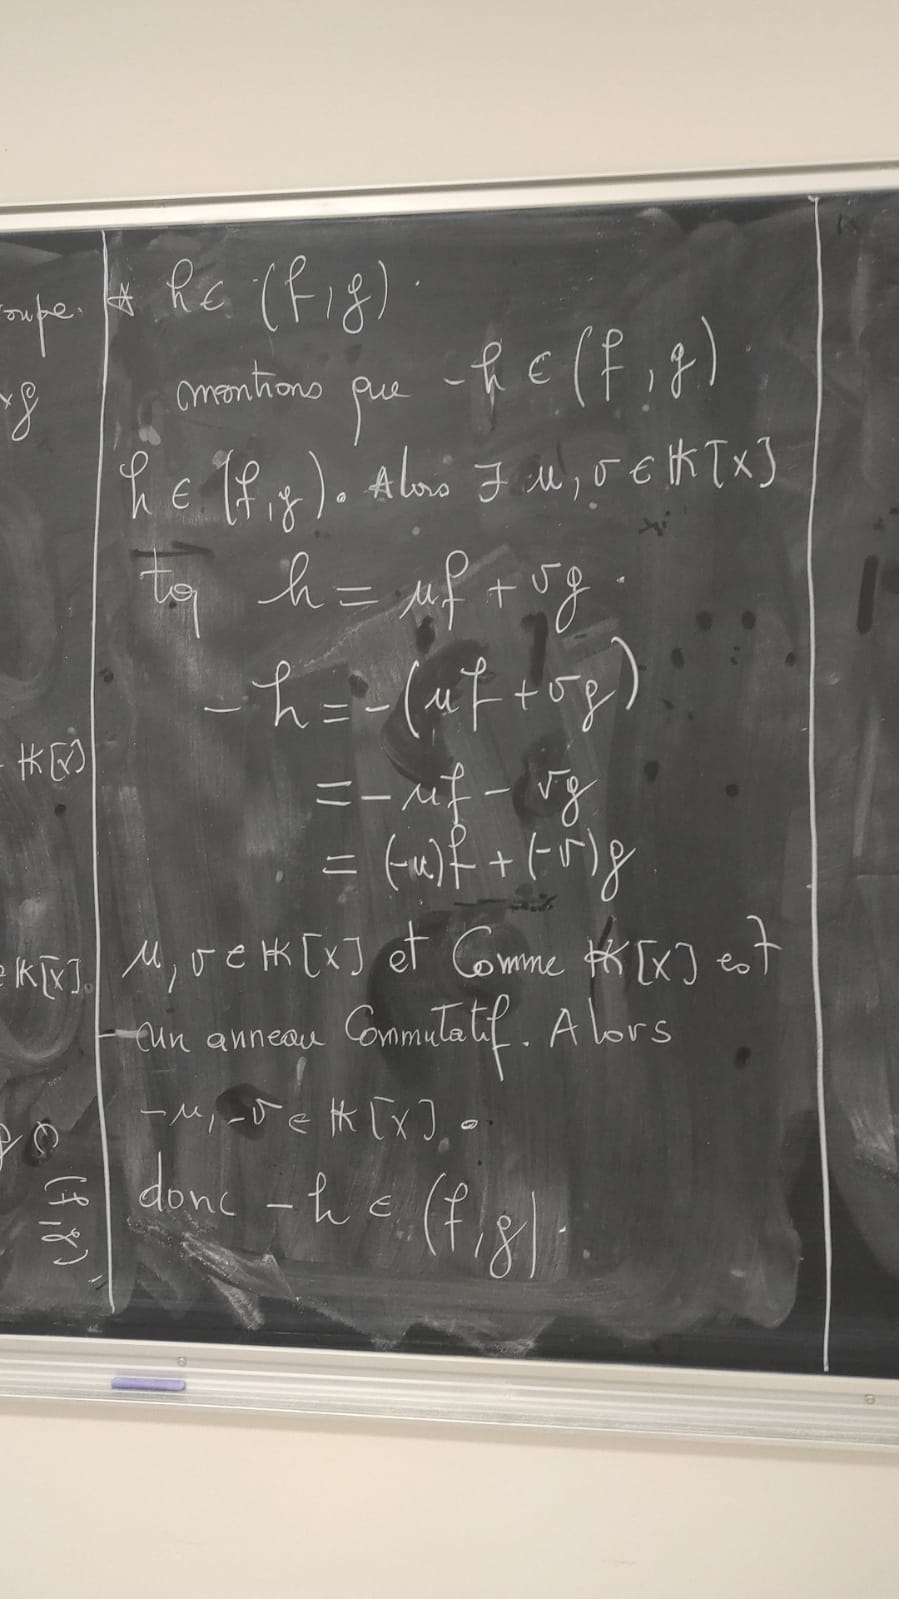 oupe.
g
K[X]
∈ K[X].
(f,g)
* h ∈ (f,g).
montrons que -h ∈ (f,g).
h ∈ (f,g). Alors ∃ u, v ∈ K[X]
tq h = uf + vg.
-h = -(uf + vg)
= -uf - vg
= (-u)f + (-v)g
u, v ∈ K[X] et Comme K[X] est
un anneau Commutatif. Alors
-u, -v ∈ K[X].
donc -h ∈ (f,g).